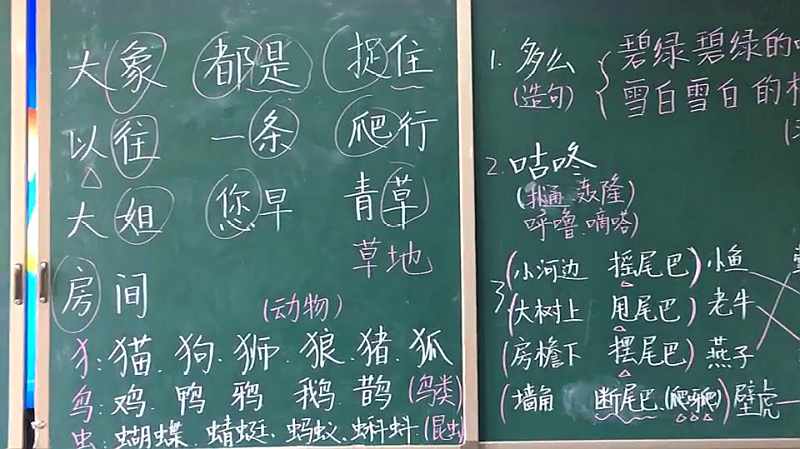 大象 都是 捉住
以往 一条 爬行
大姐 您早 青草
草地
房间
(动物)
犭:猫.狗.狮.狼.猪.狐
鸟:鸡.鸭.鸦.鹅.鹊(鸟类)
虫:蝴蝶.蜻蜓.蚂蚁.蝌蚪(昆虫
1.多么 碧绿碧绿的
(造句) 雪白雪白的
2.咕咚
(扑通.轰隆)
呼噜.嘀嗒
3
(小河边 摇尾巴)小鱼
(大树上 甩尾巴)老牛
(房檐下 摆尾巴)燕子
(墙角 断尾巴.(爬)壁虎